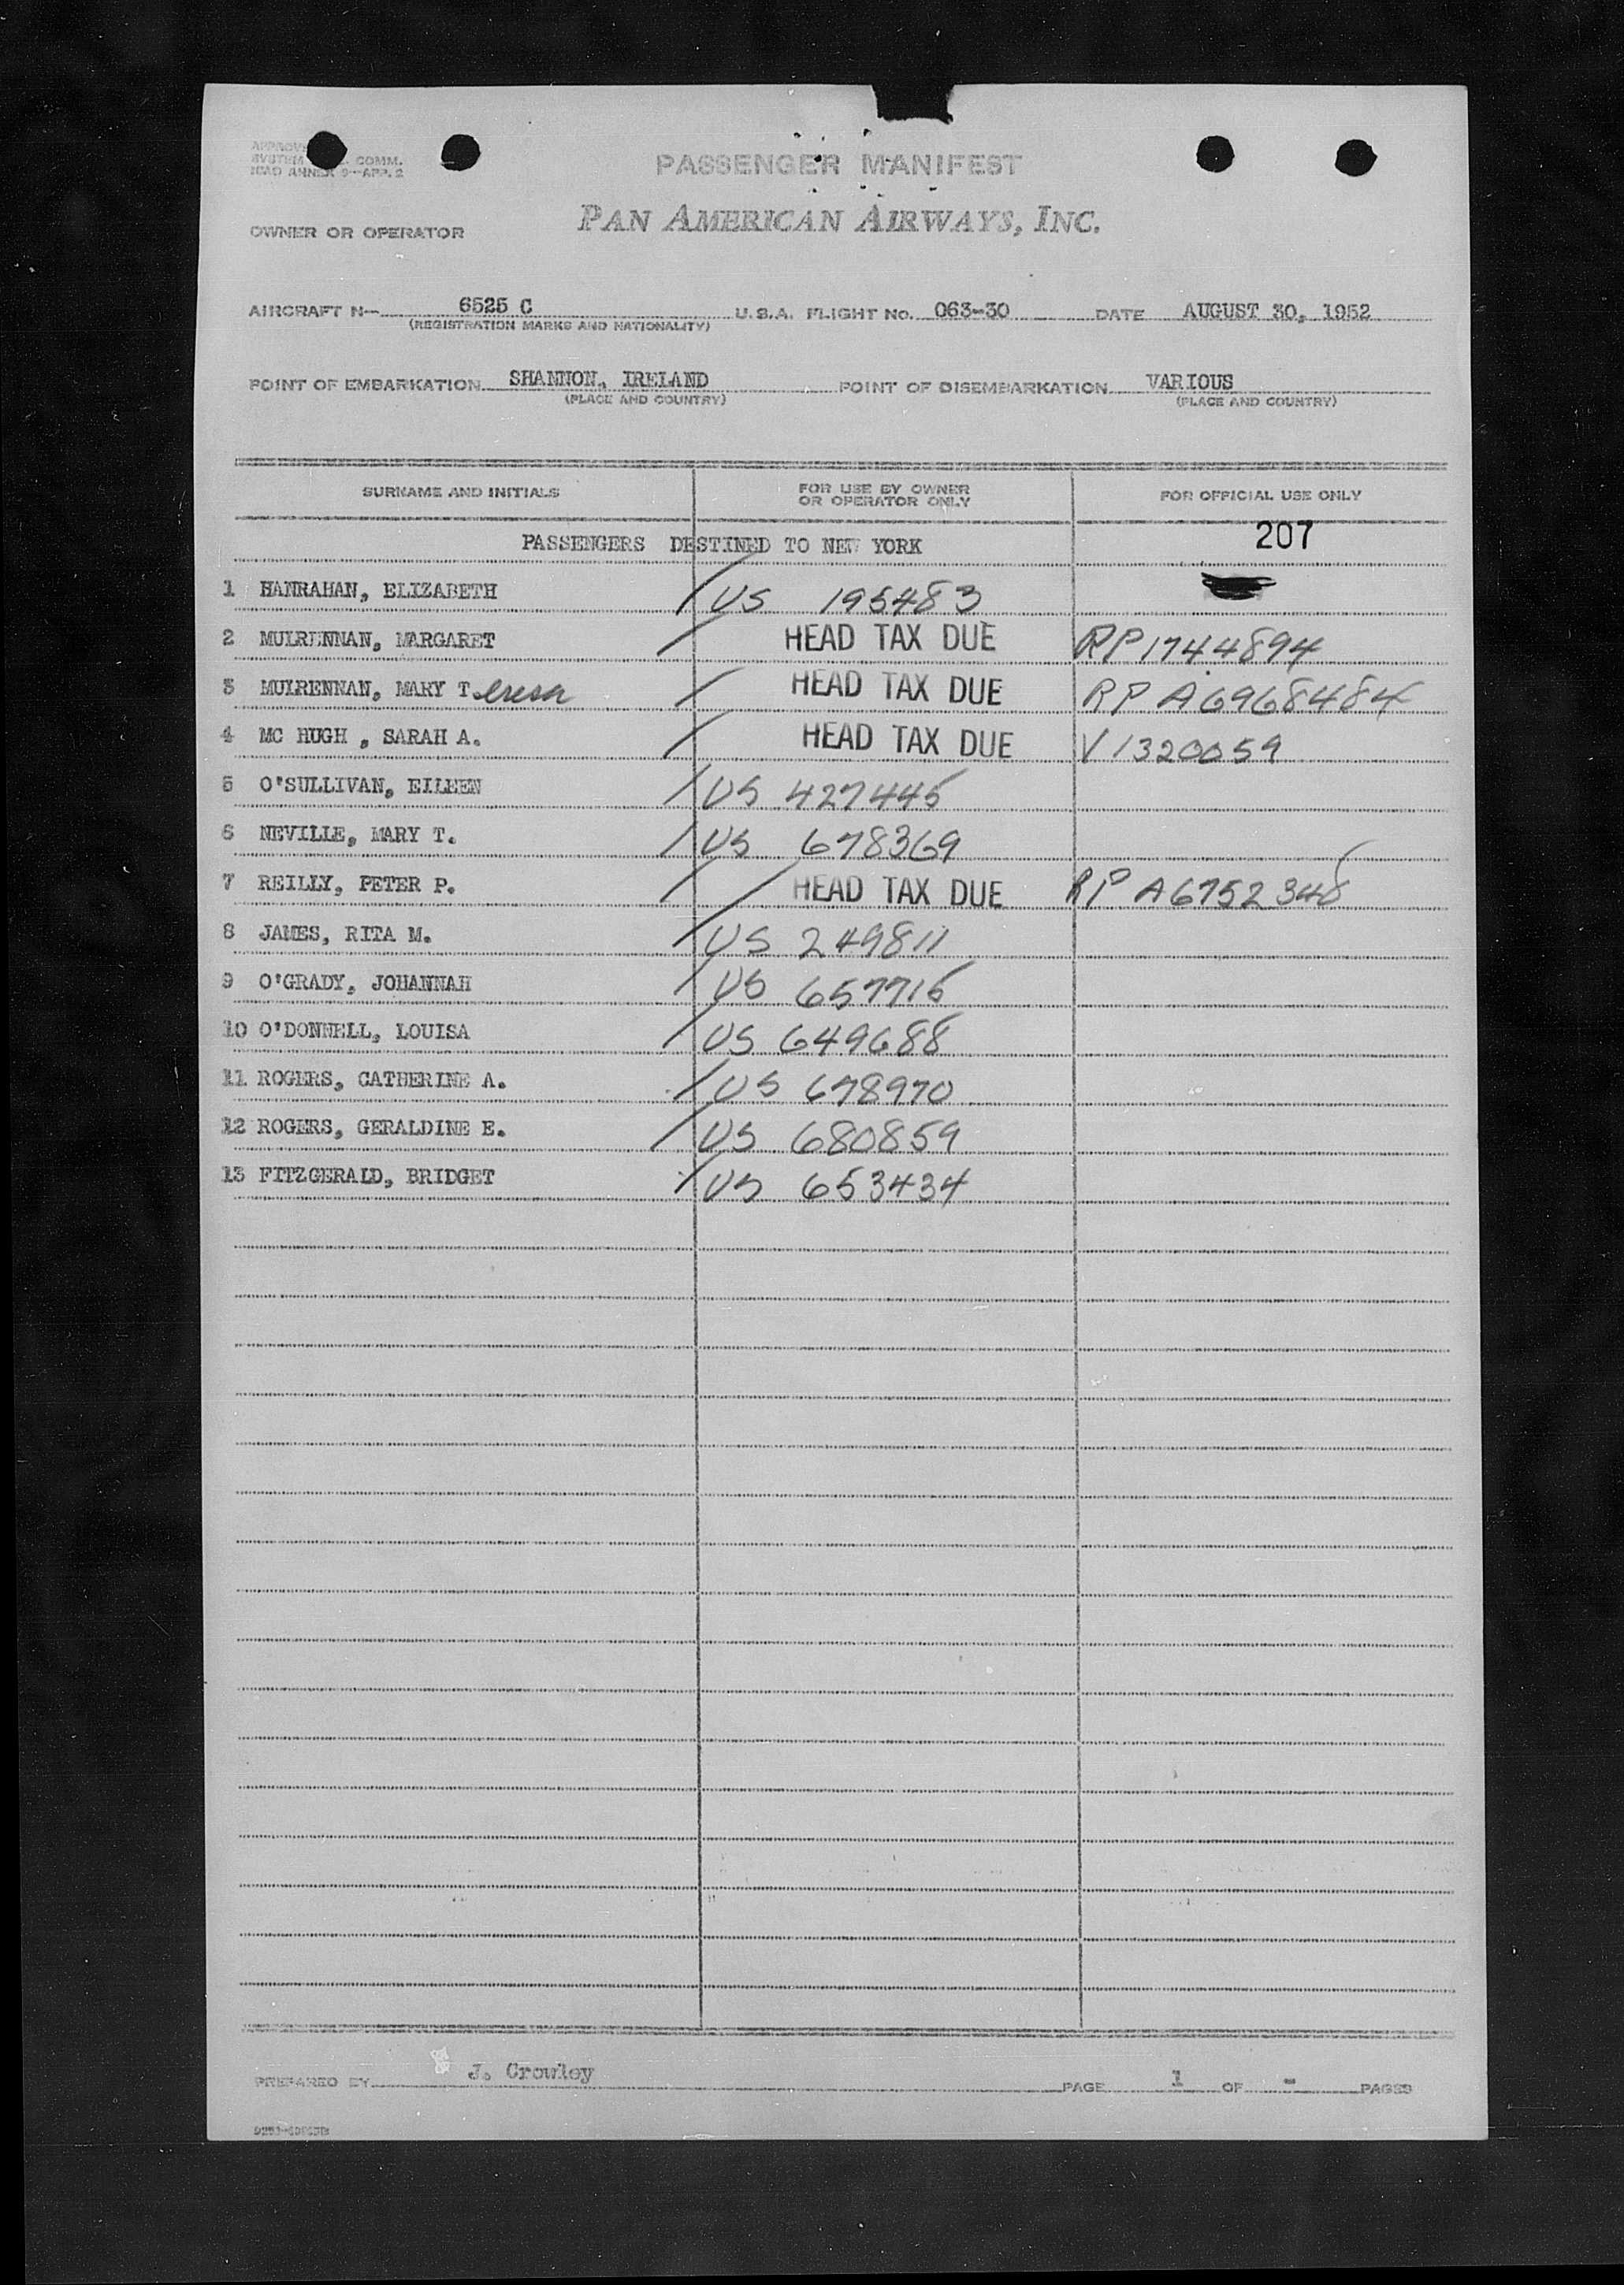 PASSENGER MANIFEST
COMM.
ICAO ANNEX 9—APP. 2
OWNER OR OPERATOR PAN AMERICAN AIRWAYS, INC.
AIRCRAFT N— 6525 C U.S.A. FLIGHT No. 063-30 DATE AUGUST 30, 1952
(REGISTRATION MARKS AND NATIONALITY)
POINT OF EMBARKATION SHANNON, IRELAND POINT OF DISEMBARKATION VARIOUS
(PLACE AND COUNTRY) (PLACE AND COUNTRY)
SURNAME AND INITIALS FOR USE BY OWNER OR OPERATOR ONLY FOR OFFICIAL USE ONLY
PASSENGERS DESTINED TO NEW YORK 207
1 HANRAHAN, ELIZABETH / US 195483
2 MULRENNAN, MARGARET / HEAD TAX DUE RP 1744894
3 MULRENNAN, MARY T.eresa / HEAD TAX DUE RP A6968484
4 MC HUGH , SARAH A. / HEAD TAX DUE V 1320059
5 O'SULLIVAN, EILEEN / US 427445
6 NEVILLE, MARY T. / US 678369
7 REILLY, PETER P. / / HEAD TAX DUE RP A6752348
8 JAMES, RITA M. / US 249811
9 O'GRADY, JOHANNAH / US 657715
10 O'DONNELL, LOUISA / US 649688
11 ROGERS, CATHERINE A. / US 678970
12 ROGERS, GERALDINE E. / US 680859
13 FITZGERALD, BRIDGET / US 653434
PREPARED BY J. Crowley PAGE 1 OF - PAGES